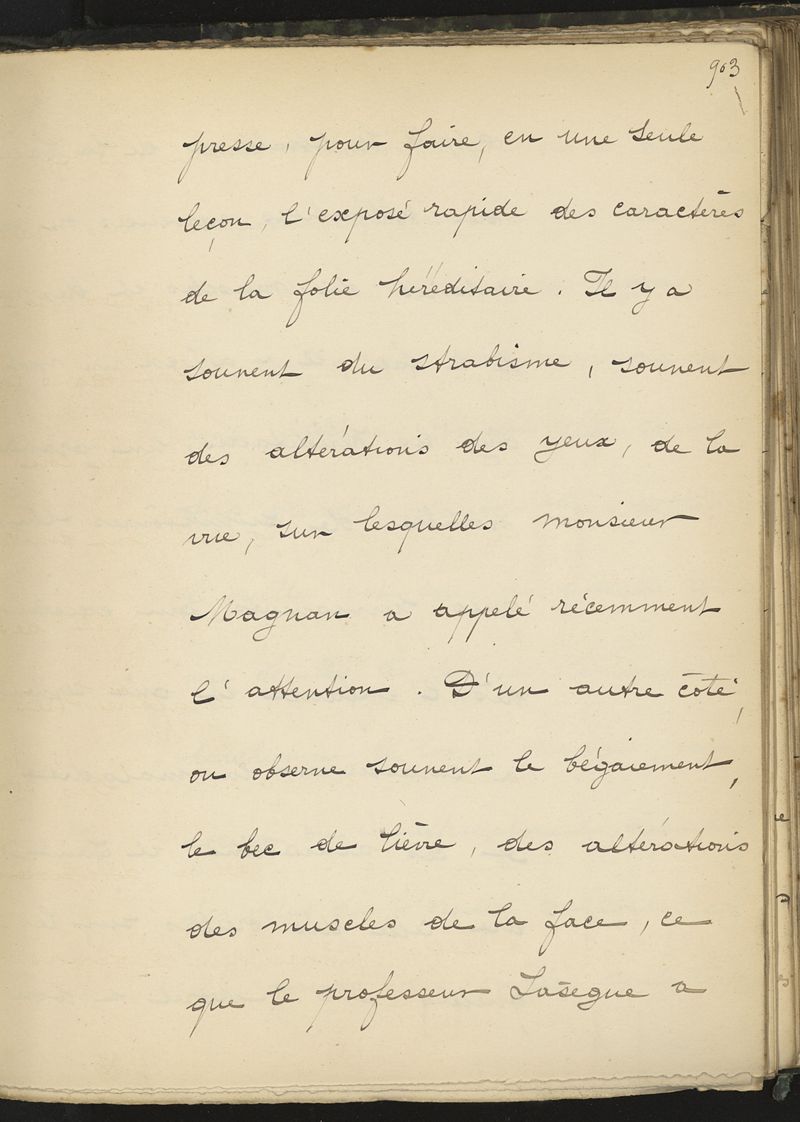 903
presse, pour faire, en une seule
leçon, l'exposé rapide des caractères
de la folie héréditaire. Il y a
souvent du strabisme, souvent
des altérations des yeux, de la
vue, sur lesquelles monsieur
Magnan a appelé récemment
l'attention. D'un autre côté,
on observe souvent le bégaiement,
le bec de lièvre, des altérations
des muscles de la face, ce
que le professeur Lasègue a